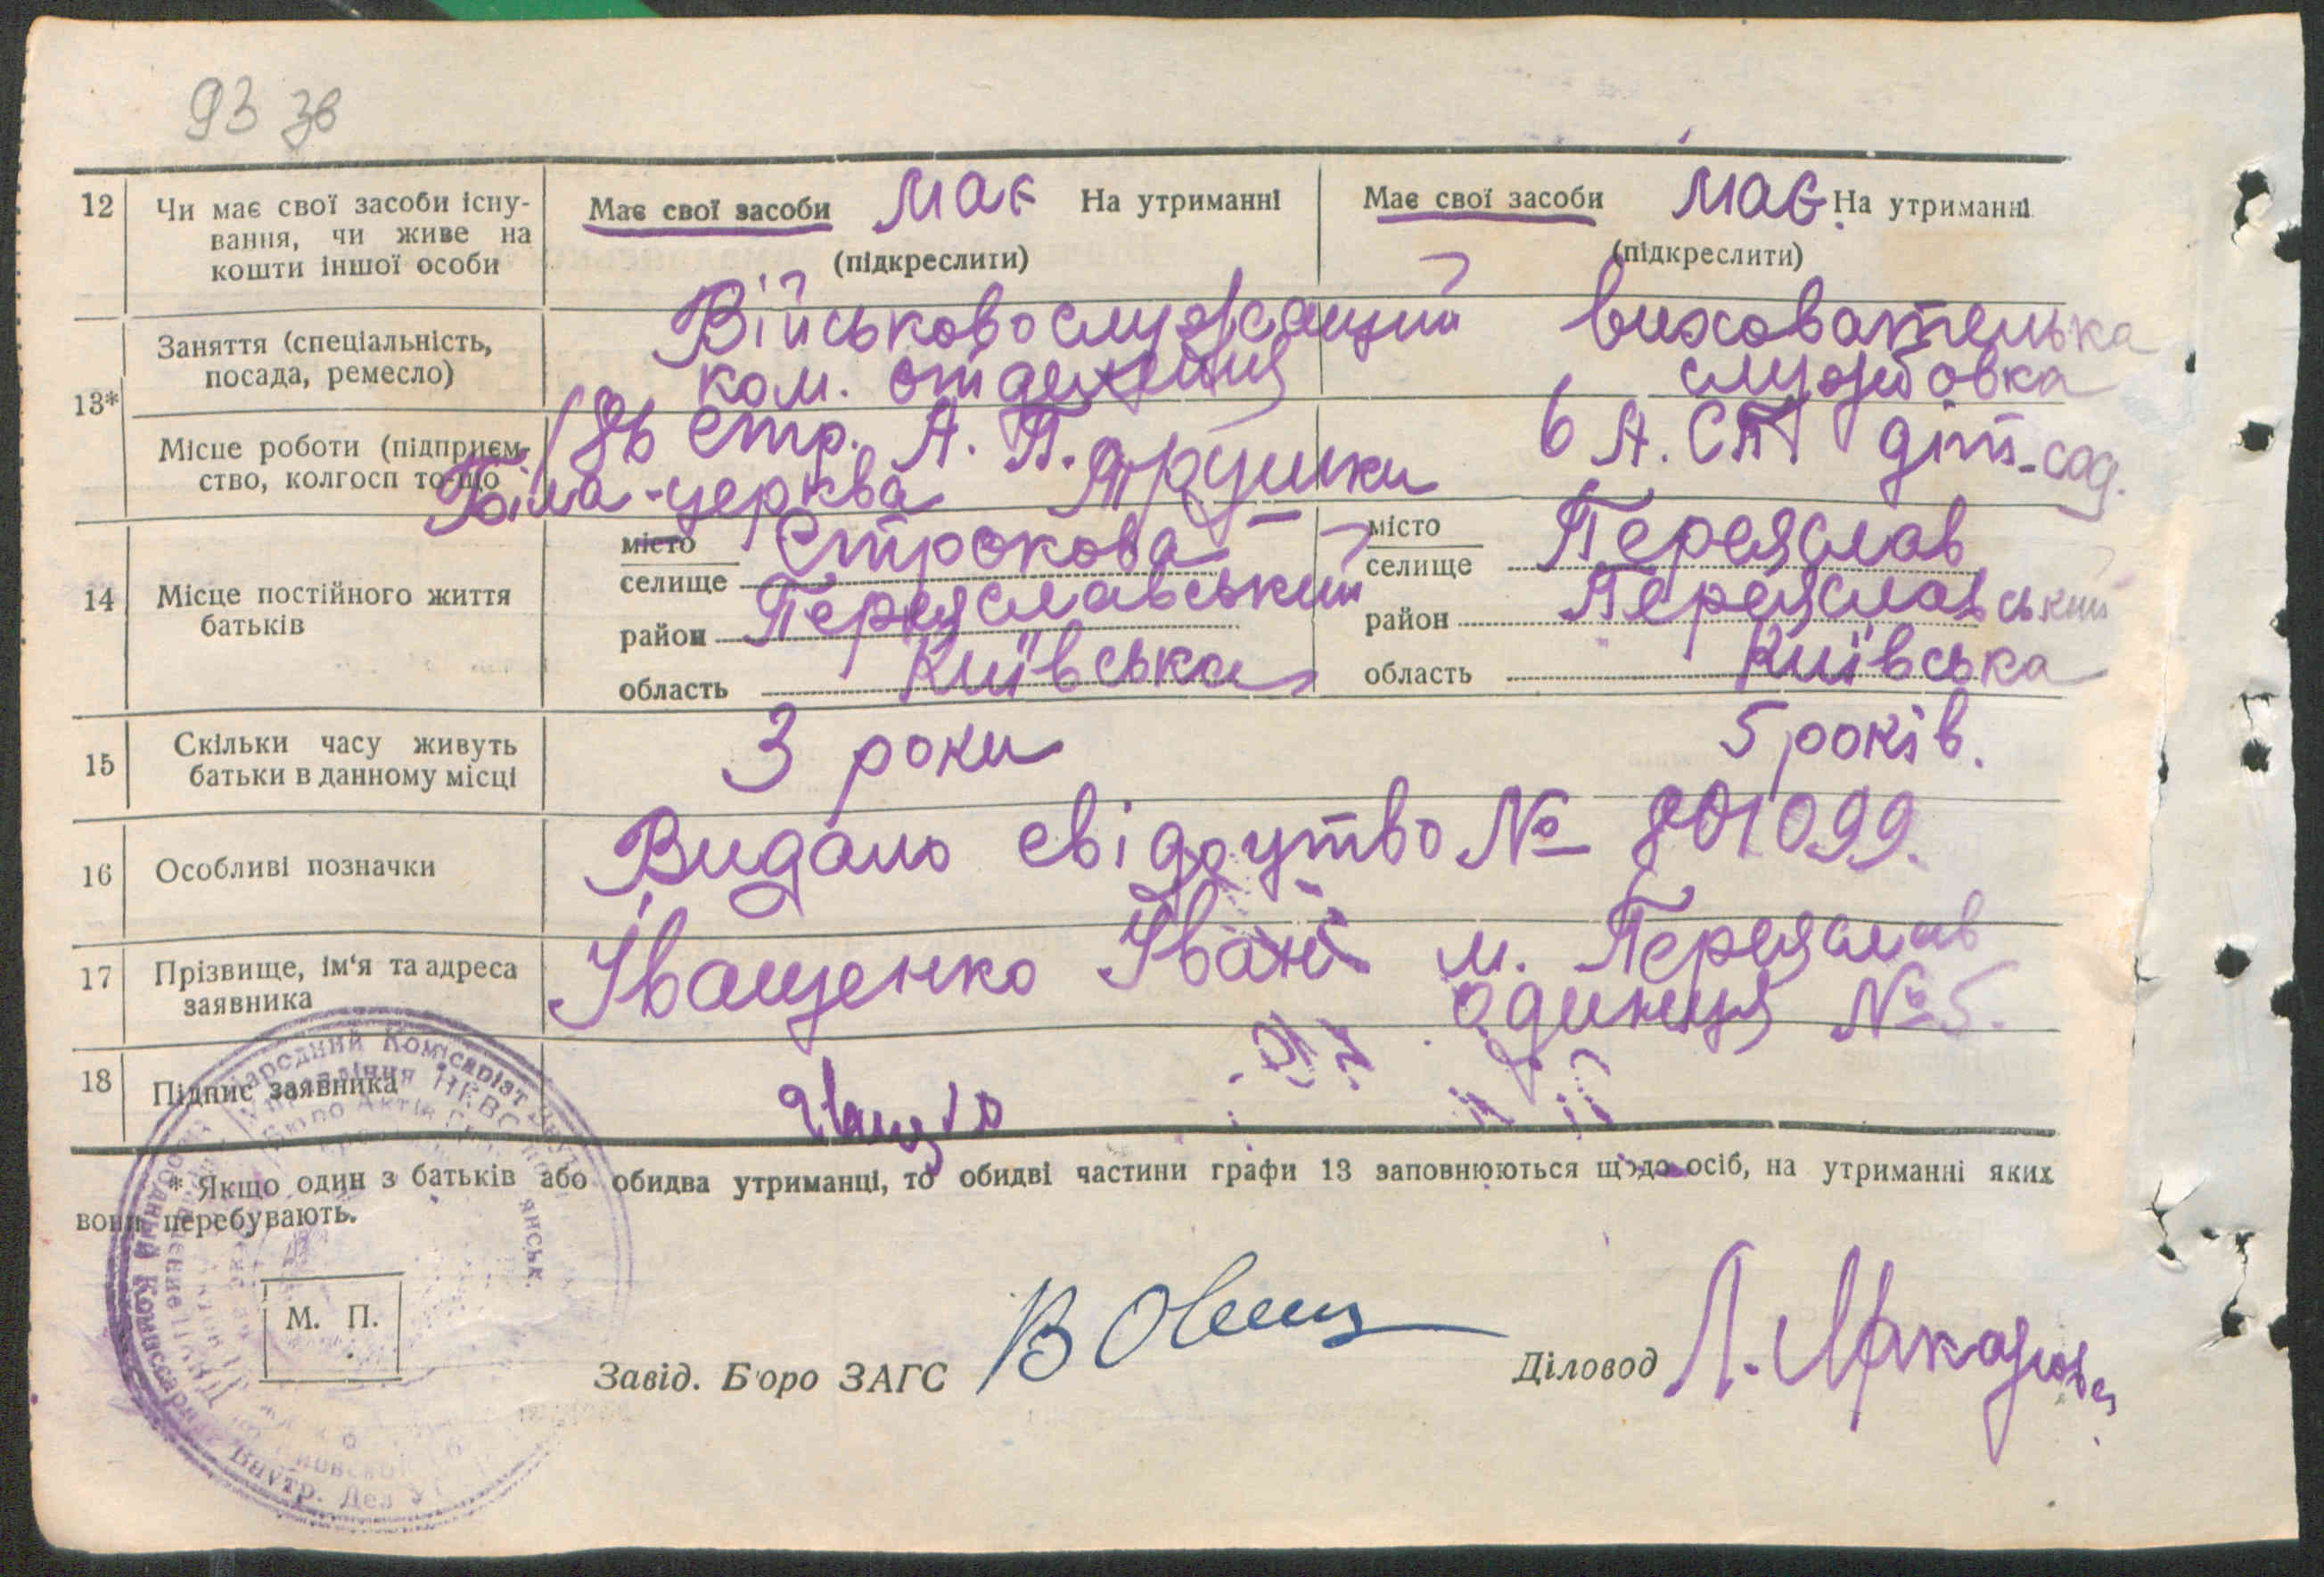 93 зв
12 Чи має свої засоби існу-
вання, чи живе на
кошти іншої особи
Має свої засоби має На утриманні
(підкреслити)
Має свої засоби має На утриманні
(підкреслити)
13*
Заняття (спеціальність,
посада, ремесло)
Військовослужащий
ком. отделения
вихователька
службовка
Місце роботи (підприєм-
ство, колгосп то-що
стр. А. П.
Біла-церква
6 А. СП діт-сад.
14 Місце постійного життя
батьків
місто
селище Строкова
район Переяславський
область Київська
місто
селище Переяслав
район Переяславський
область Київська
15 Скільки часу живуть
батьки в данному місці
3 роки
5 років.
16 Особливі позначки
Видано свідоцтво № 801099.
17 Прізвище, ім'я та адреса
заявника
Іващенко Іван м. Переяслав
одиниця № 5.
18 Підпис заявника
* Якщо один з батьків або обидва утриманці, то обидві частини графи 13 заповнюються щодо осіб, на утриманні яких
вони перебувають.
М. П.
Завід. Б'юро ЗАГС
Діловод Л. Макарова
Народний Комісаріат
Управління НКВС
Бюро Актів
Народный Комиссариат Внутр. Дел